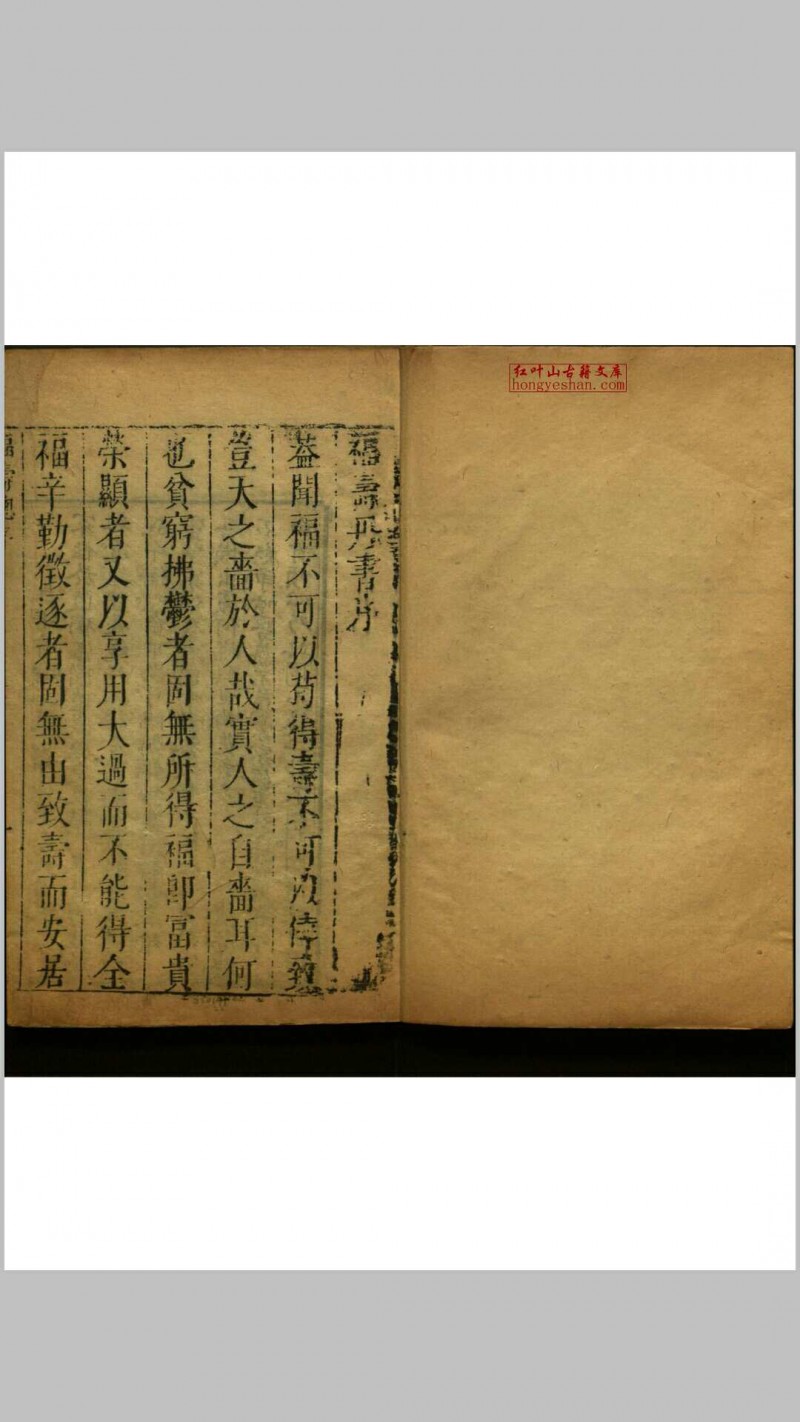 红叶山古籍文库
hongyeshan.com
福壽丹書序
葢聞福不可以苟得壽不可以倖致
豈天之嗇於人哉實人之自嗇耳何
也貧窮拂鬱者固無所得福卽富貴
榮顯者又以享用大過而不能得全
福辛勤徵逐者固無由致壽而安居